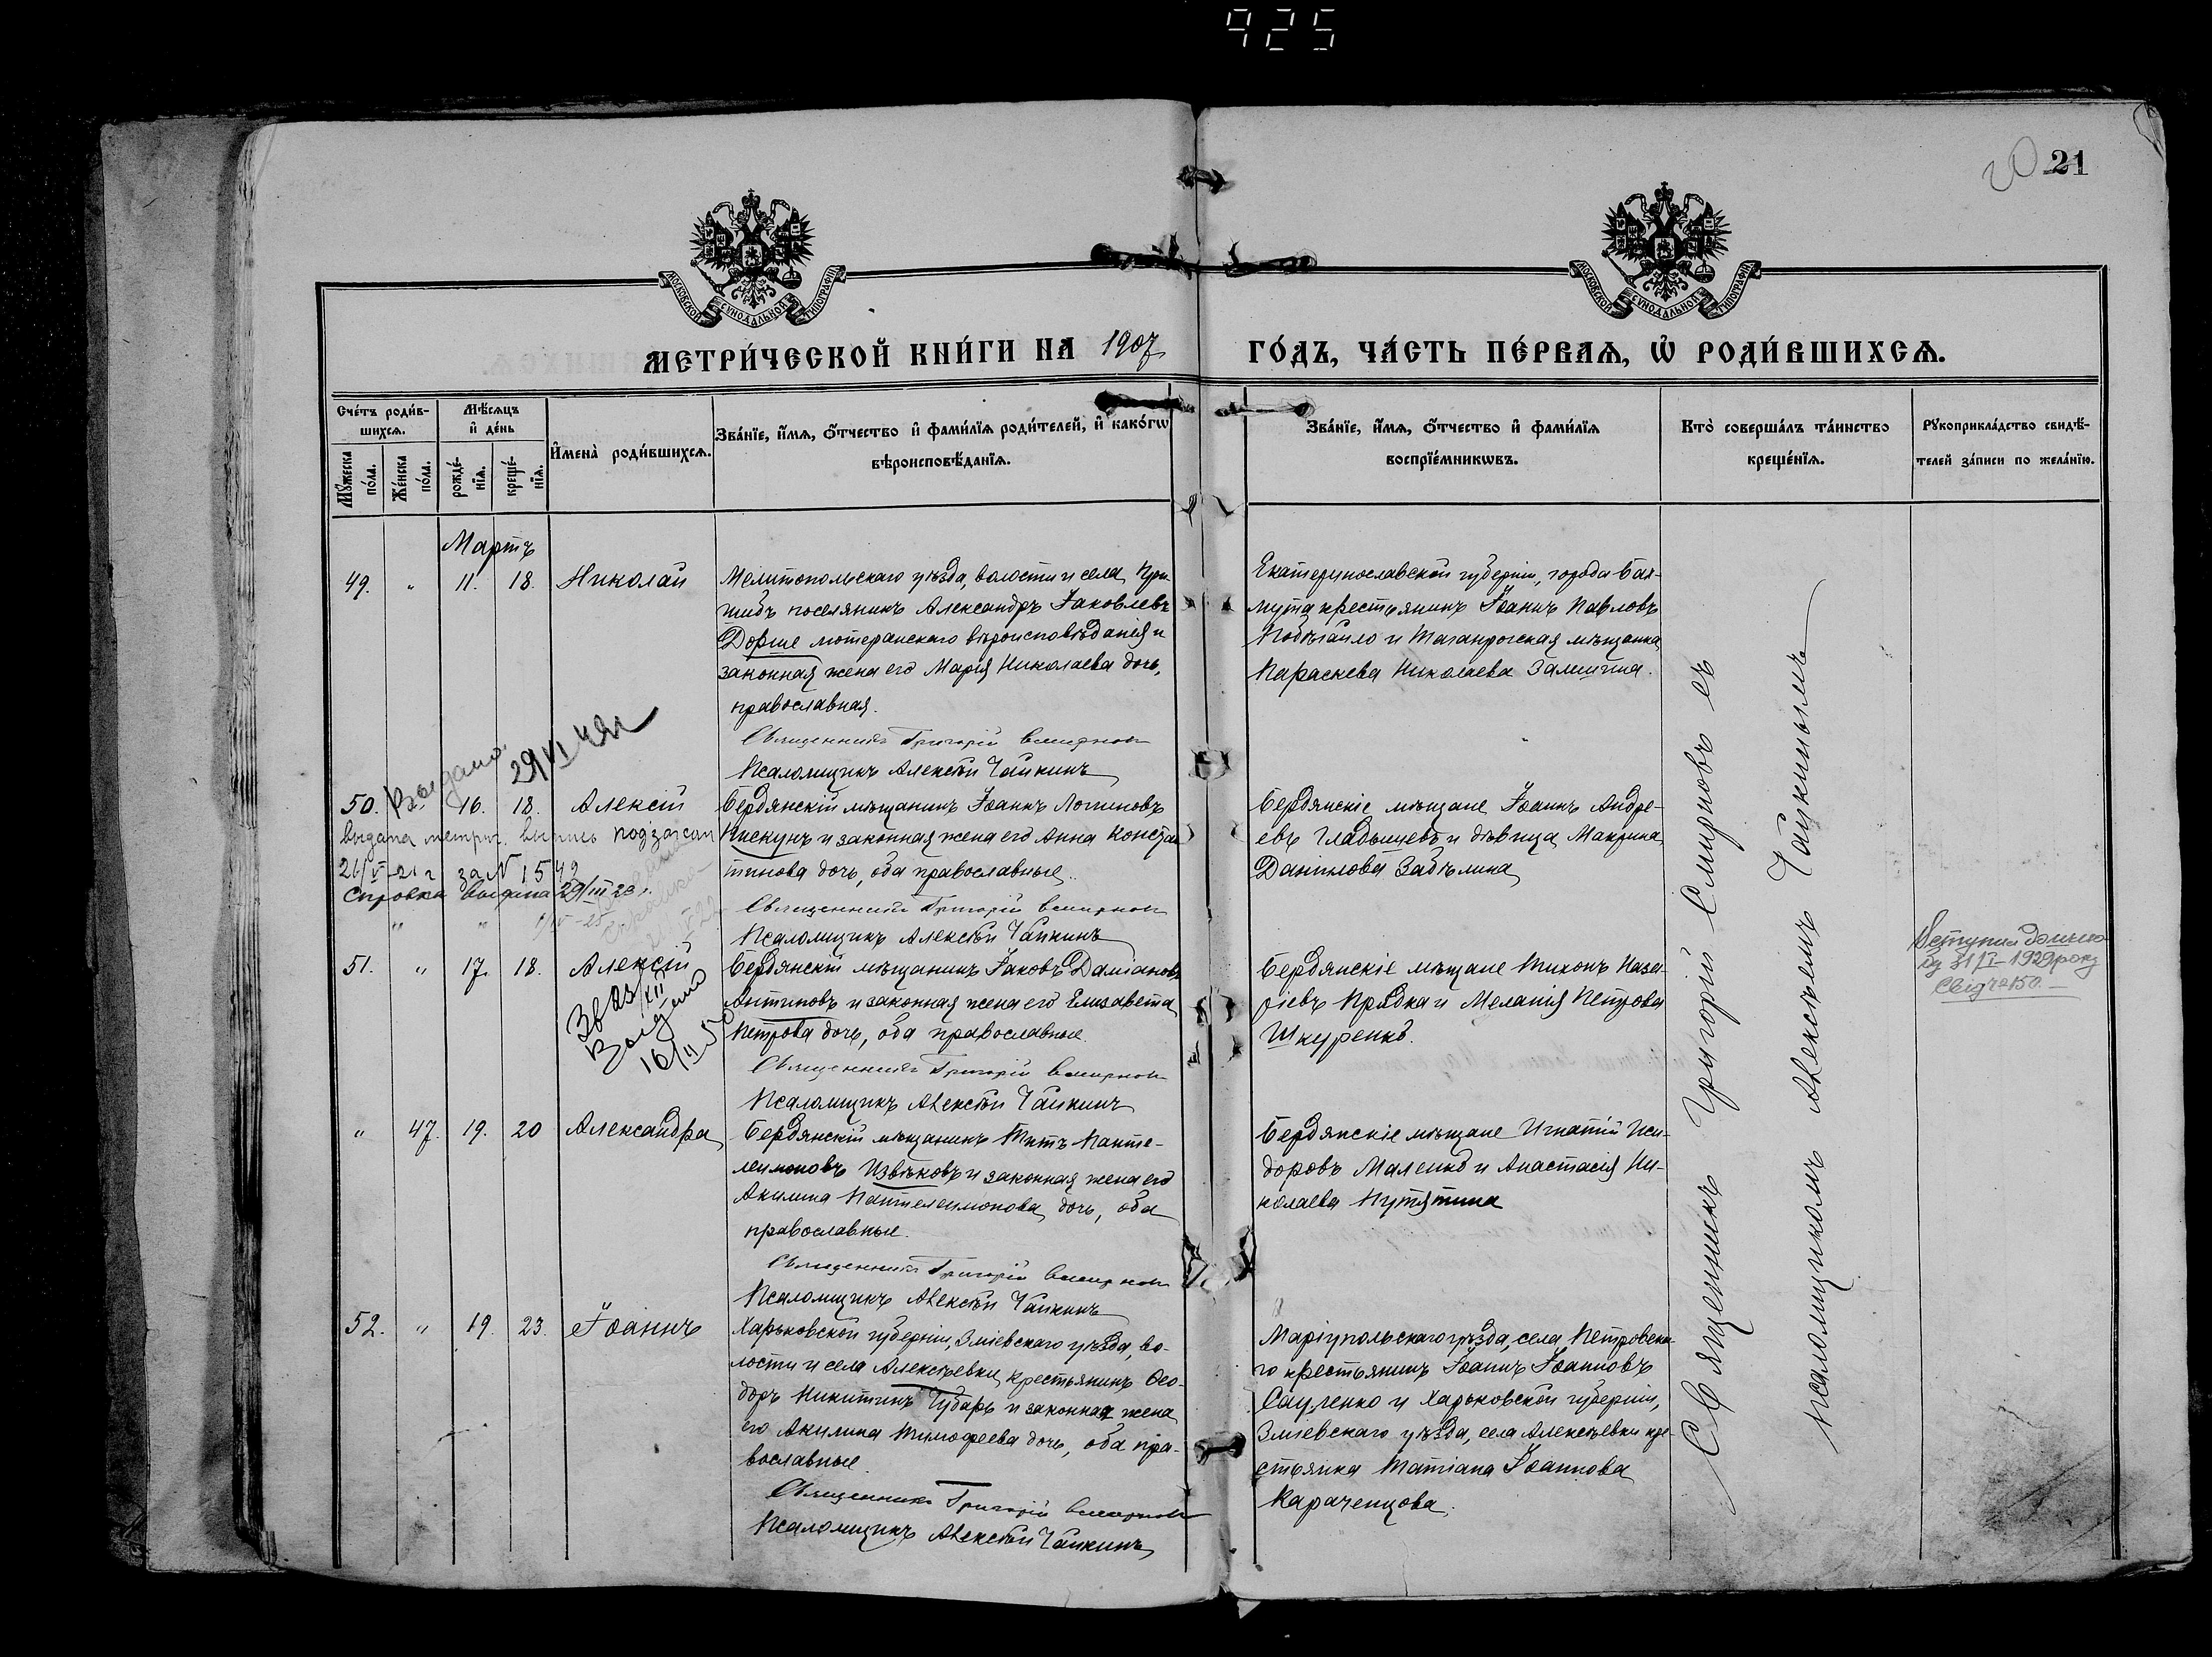 925
20 21
МОСКОВСКОЙ СѴНОДАЛЬНОЙ ТИПОГРАФІИ
МОСКОВСКОЙ СѴНОДАЛЬНОЙ ТИПОГРАФІИ
МЕТРИ́ЧЕСКОЙ КНИ́ГИ НА 1907 ГО́ДЪ, ЧА́СТЬ ПЕ́РВАѦ, Ѽ РОДИ́ВШИХСѦ.
Сче́тъ роди́в-
шихсѧ.
Мꙋ́жеска по́ла.
Же́нска по́ла.
Мѣ́сѧцъ
и҆ де́нь
рожде́-нїѧ.
креще́-нїѧ.
И҆мена̀ роди́вшихсѧ.
Зва́нїе, и҆́мѧ, ѻ҆́тчество и҆ фами́лїѧ роди́телей, и҆ како́гѡ
вѣроисповѣ́данїѧ.
Зва́нїе, и҆́мѧ, ѻ҆́тчество и҆ фами́лїѧ
воспрїе́мникѡвъ.
Кто̀ соверша́лъ та́инство
креще́нїѧ.
Рꙋкоприкла́дство свидѣ́-
телей за́писи по жела́нїю.
Мартъ
49. " 11. 18. Николай
Мелитопольскаго уѣзда, волости и села При-
шибъ поселянинъ Александръ Іаковлевъ
Дорше лютеранскаго вѣроисповѣданія и
законная жена его Марія Николаева дочь,
православная.
Священникъ Григорій Смирнов
Псаломщикъ Алексѣй Чайкинъ
Екатеринославской губерніи, города Бах-
мута крестьянинъ Іоаннъ Павловъ
Побѣгайло и Таганрогская мѣщанка
Параскева Николаева
Выдано 29/VI
50. 16. 18. Алексій
Бердянскій мѣщанинъ Іоаннъ Логиновъ
и законная жена его Анна Констан
тинова дочь, оба православные.
Священникъ Григорій Смирнов
Псаломщикъ Алексѣй Чайкинъ
Бердянскіе мѣщане Іоаннъ Андре-
евъ Гладышевъ и дѣвица Макрина
Даніилова Забѣлина
Выдана метрич. выпись
за № 1549
Справка выдана 29/III 23 г.
51. " 17. 18. Алексій
Бердянскій мѣщанинъ Іаковъ Даміановъ
Антиповъ и законная жена его Елизавета
Петрова дочь, оба православные.
Священникъ Григорій Смирнов
Псаломщикъ Алексѣй Чайкинъ
Бердянскіе мѣщане Тихонъ Наза-
ріевъ Прядка и Меланія Петрова
Шкуренко.
Выдано
16/II 5
Вступил до шлю-
бу 31/I-1929 року
Свід. №150.
" 47. 19. 20 Александра
Бердянскій мѣщанинъ Титъ Панте-
леимоновъ Извѣковъ и законная жена его
Акилина Пантелеимонова дочь, оба
православные.
Священникъ Григорій Смирнов
Псаломщикъ Алексѣй Чайкинъ
Бердянскіе мѣщане Игнатій Иси-
доровъ Маленко и Анастасія Ни-
колаева Путятина
52. " 19. 23. Іоаннъ
Харьковской губерніи, Зміевскаго уѣзда, во-
лости и села Алексѣевки, крестьянинъ Ѳео-
доръ Никитинъ Чубарь и законная жена
его Акилина Тимофеева дочь, оба пра-
вославные.
Священникъ Григорій Смирнов
Псаломщикъ Алексѣй Чайкинъ
Маріупольскаго уѣзда, села Петровска-
го крестьянинъ Іоаннъ Іоанновъ
Саученко и Харьковской губерніи,
Зміевскаго уѣзда, села Алексѣевки кре-
стьянка Татіана Іоаннова
Караченцова.
Священникъ Григорій Смирновъ съ
псаломщикомъ Алексѣемъ Чайкинымъ